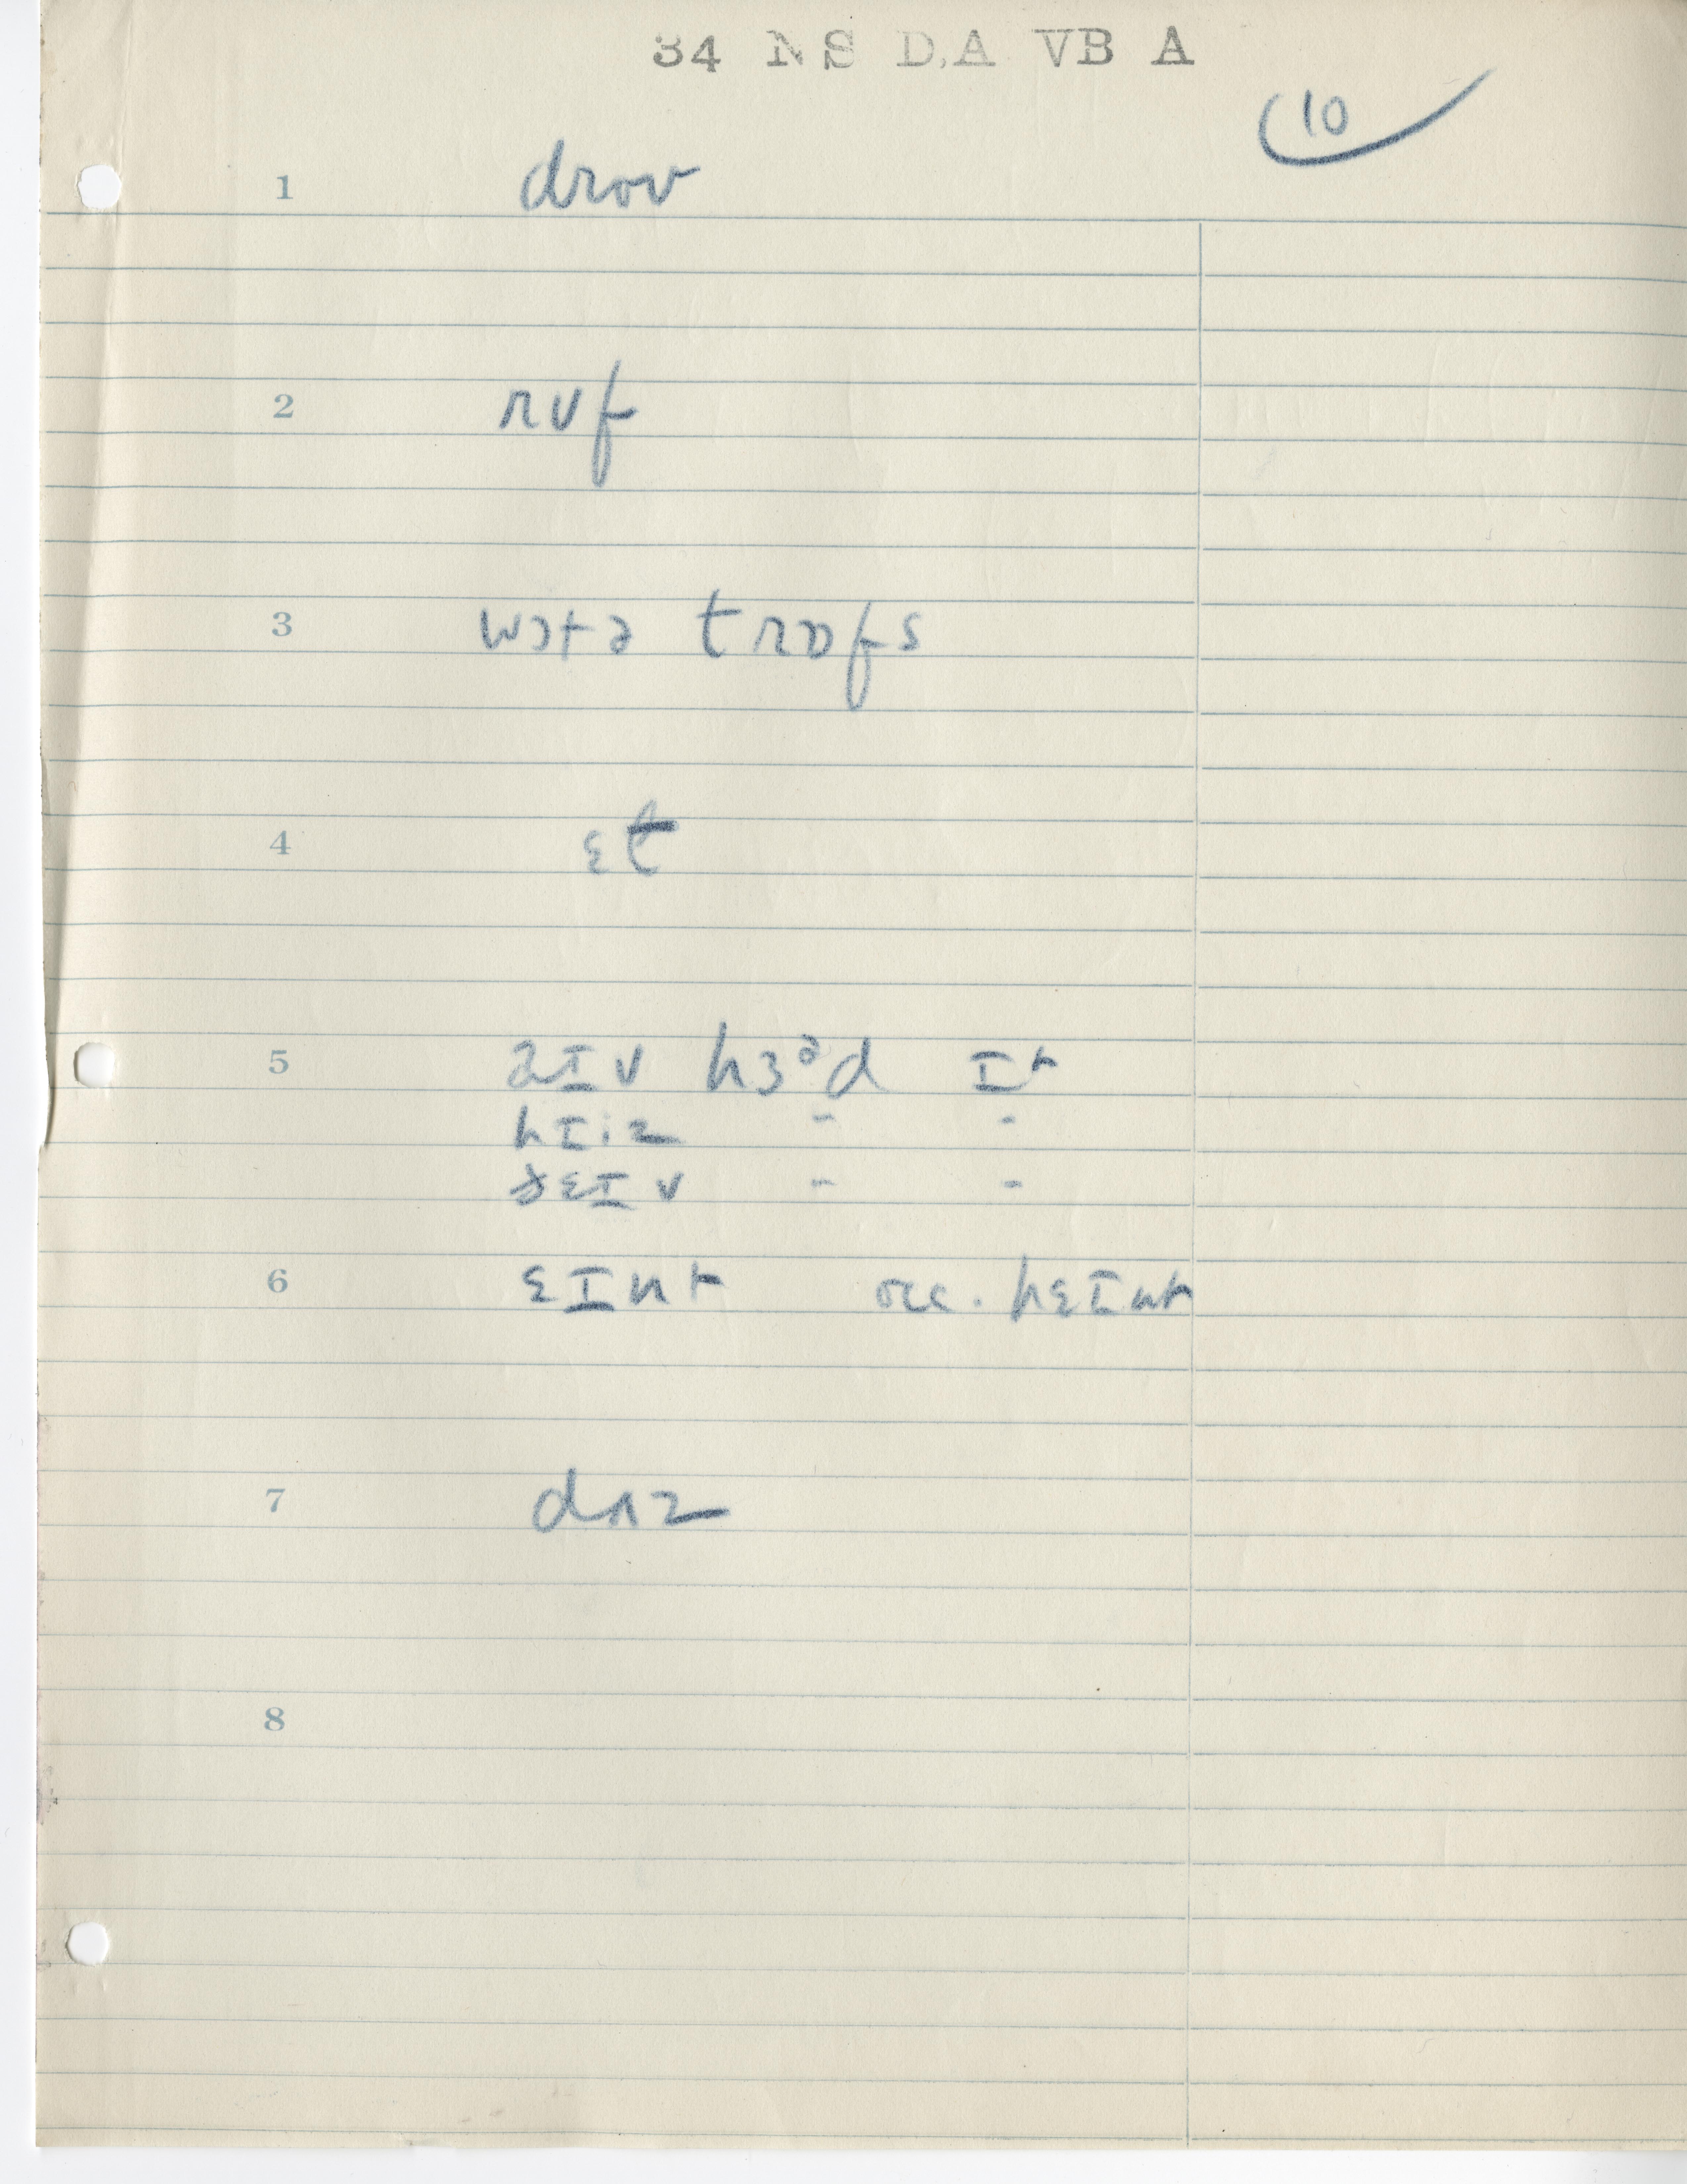 34 NS D.A VB A
10
1 drov
2 rʊf
3 wɔtə trɒfs
4 ɛt
5 aɪv hɜᵊd ɪt
hɪiz " "
ðɛɪv " "
6 ɛɪnt occ. hɛɪnt
7 dʌz
8